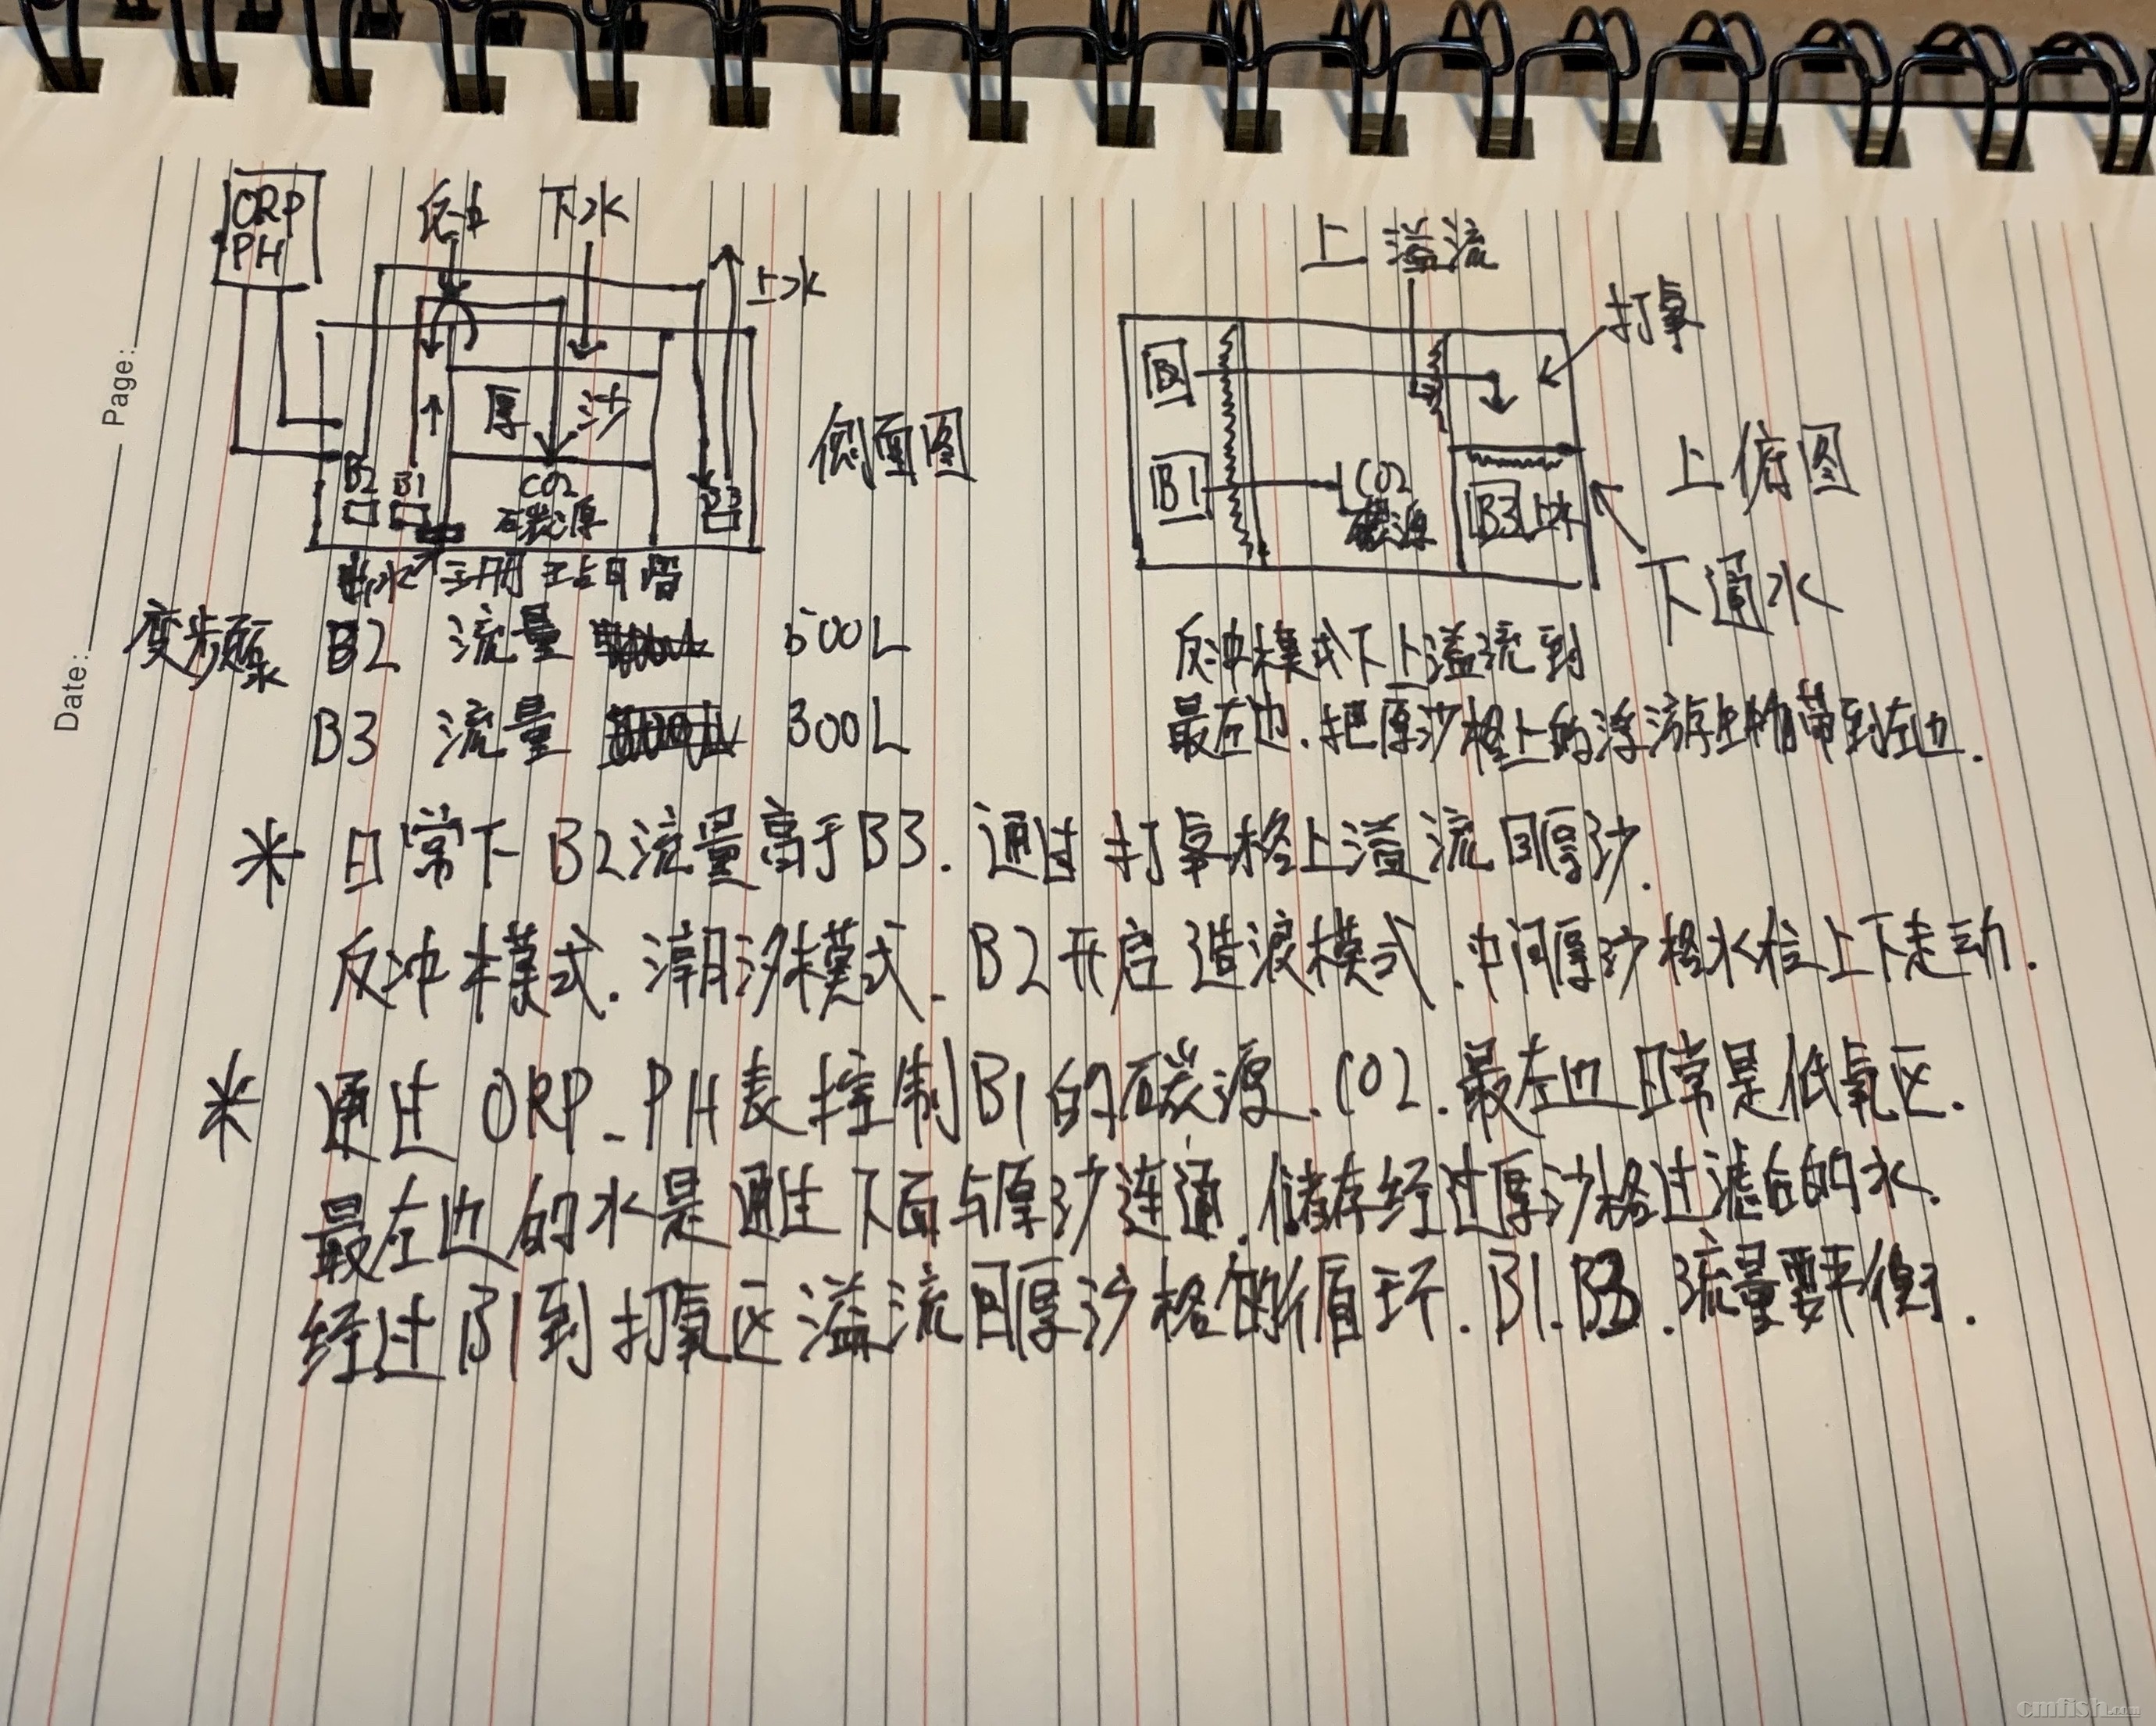 Page:
Date:
ORP
PH
反冲
下水
上水
厚沙
B2
B1
CO2
碳源
B3
侧面图
上溢流
打氧
B2
B1
CO2
碳源
B3上水
上俯图
下通水
变频泵 B2 流量 500L
B3 流量 300L
反冲模式下上溢流到
最左边.把厚沙格上的浮游生物带到左边.
* 日常下B2流量高于B3.通过打氧格上溢流回厚沙.
反冲模式.潮汐模式.B2开启造波模式.中间厚沙格水位上下走动.
* 通过ORP.PH表控制B1的碳源.CO2.最左边日常是低氧区.
最左边的水是通过下面与厚沙连通.储存经过厚沙格过滤后的水.
经过B1到打氧区溢流回厚沙格的循环.B1.B3.流量要平衡.
cmfish.com